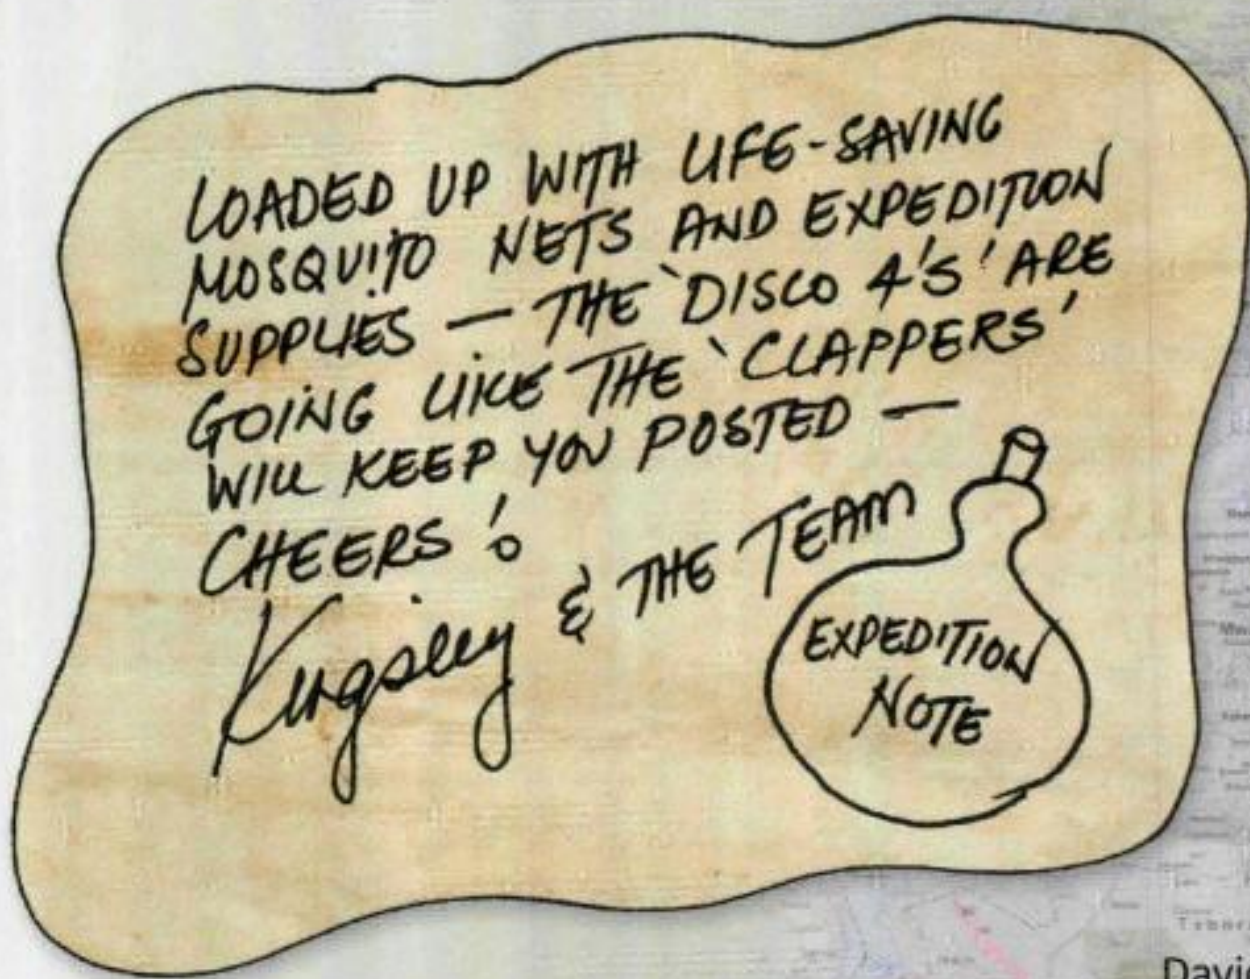 LOADED UP WITH LIFE-SAVING
MOSQUITO NETS AND EXPEDITION
SUPPLIES — THE 'DISCO 4'S' ARE
GOING LIKE THE 'CLAPPERS'
WILL KEEP YOU POSTED —
CHEERS!
Kingsley & THE TEAM
EXPEDITION
NOTE